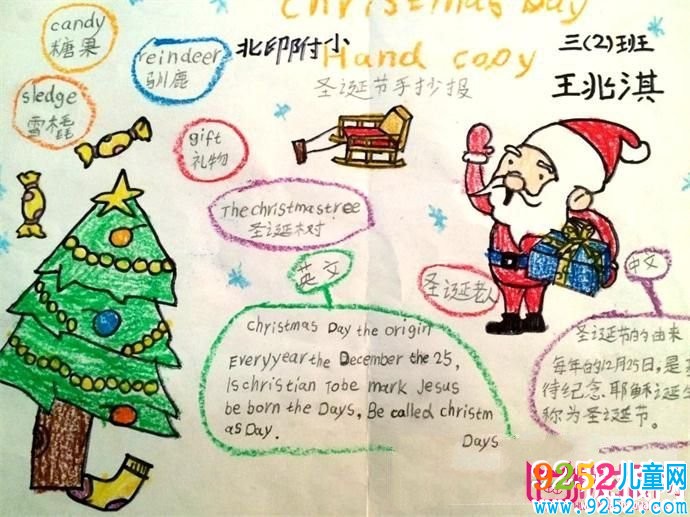 Christmas Day
Hand copy
圣诞节手抄报
北印附小
三(2)班
王兆淇
candy
糖果
reindeer
驯鹿
sledge
雪橇
gift
礼物
The christmas tree
圣诞树
英文
Christmas Day the origin
Everyyear the December the 25,
Is christian Tobe mark Jesus
be born the Days, Be called christm
as Day.
Days
圣诞老人
中文
圣诞节的由来
每年的12月25日,是
待纪念耶稣诞生
称为圣诞节。
9252儿童网
www.9252.com